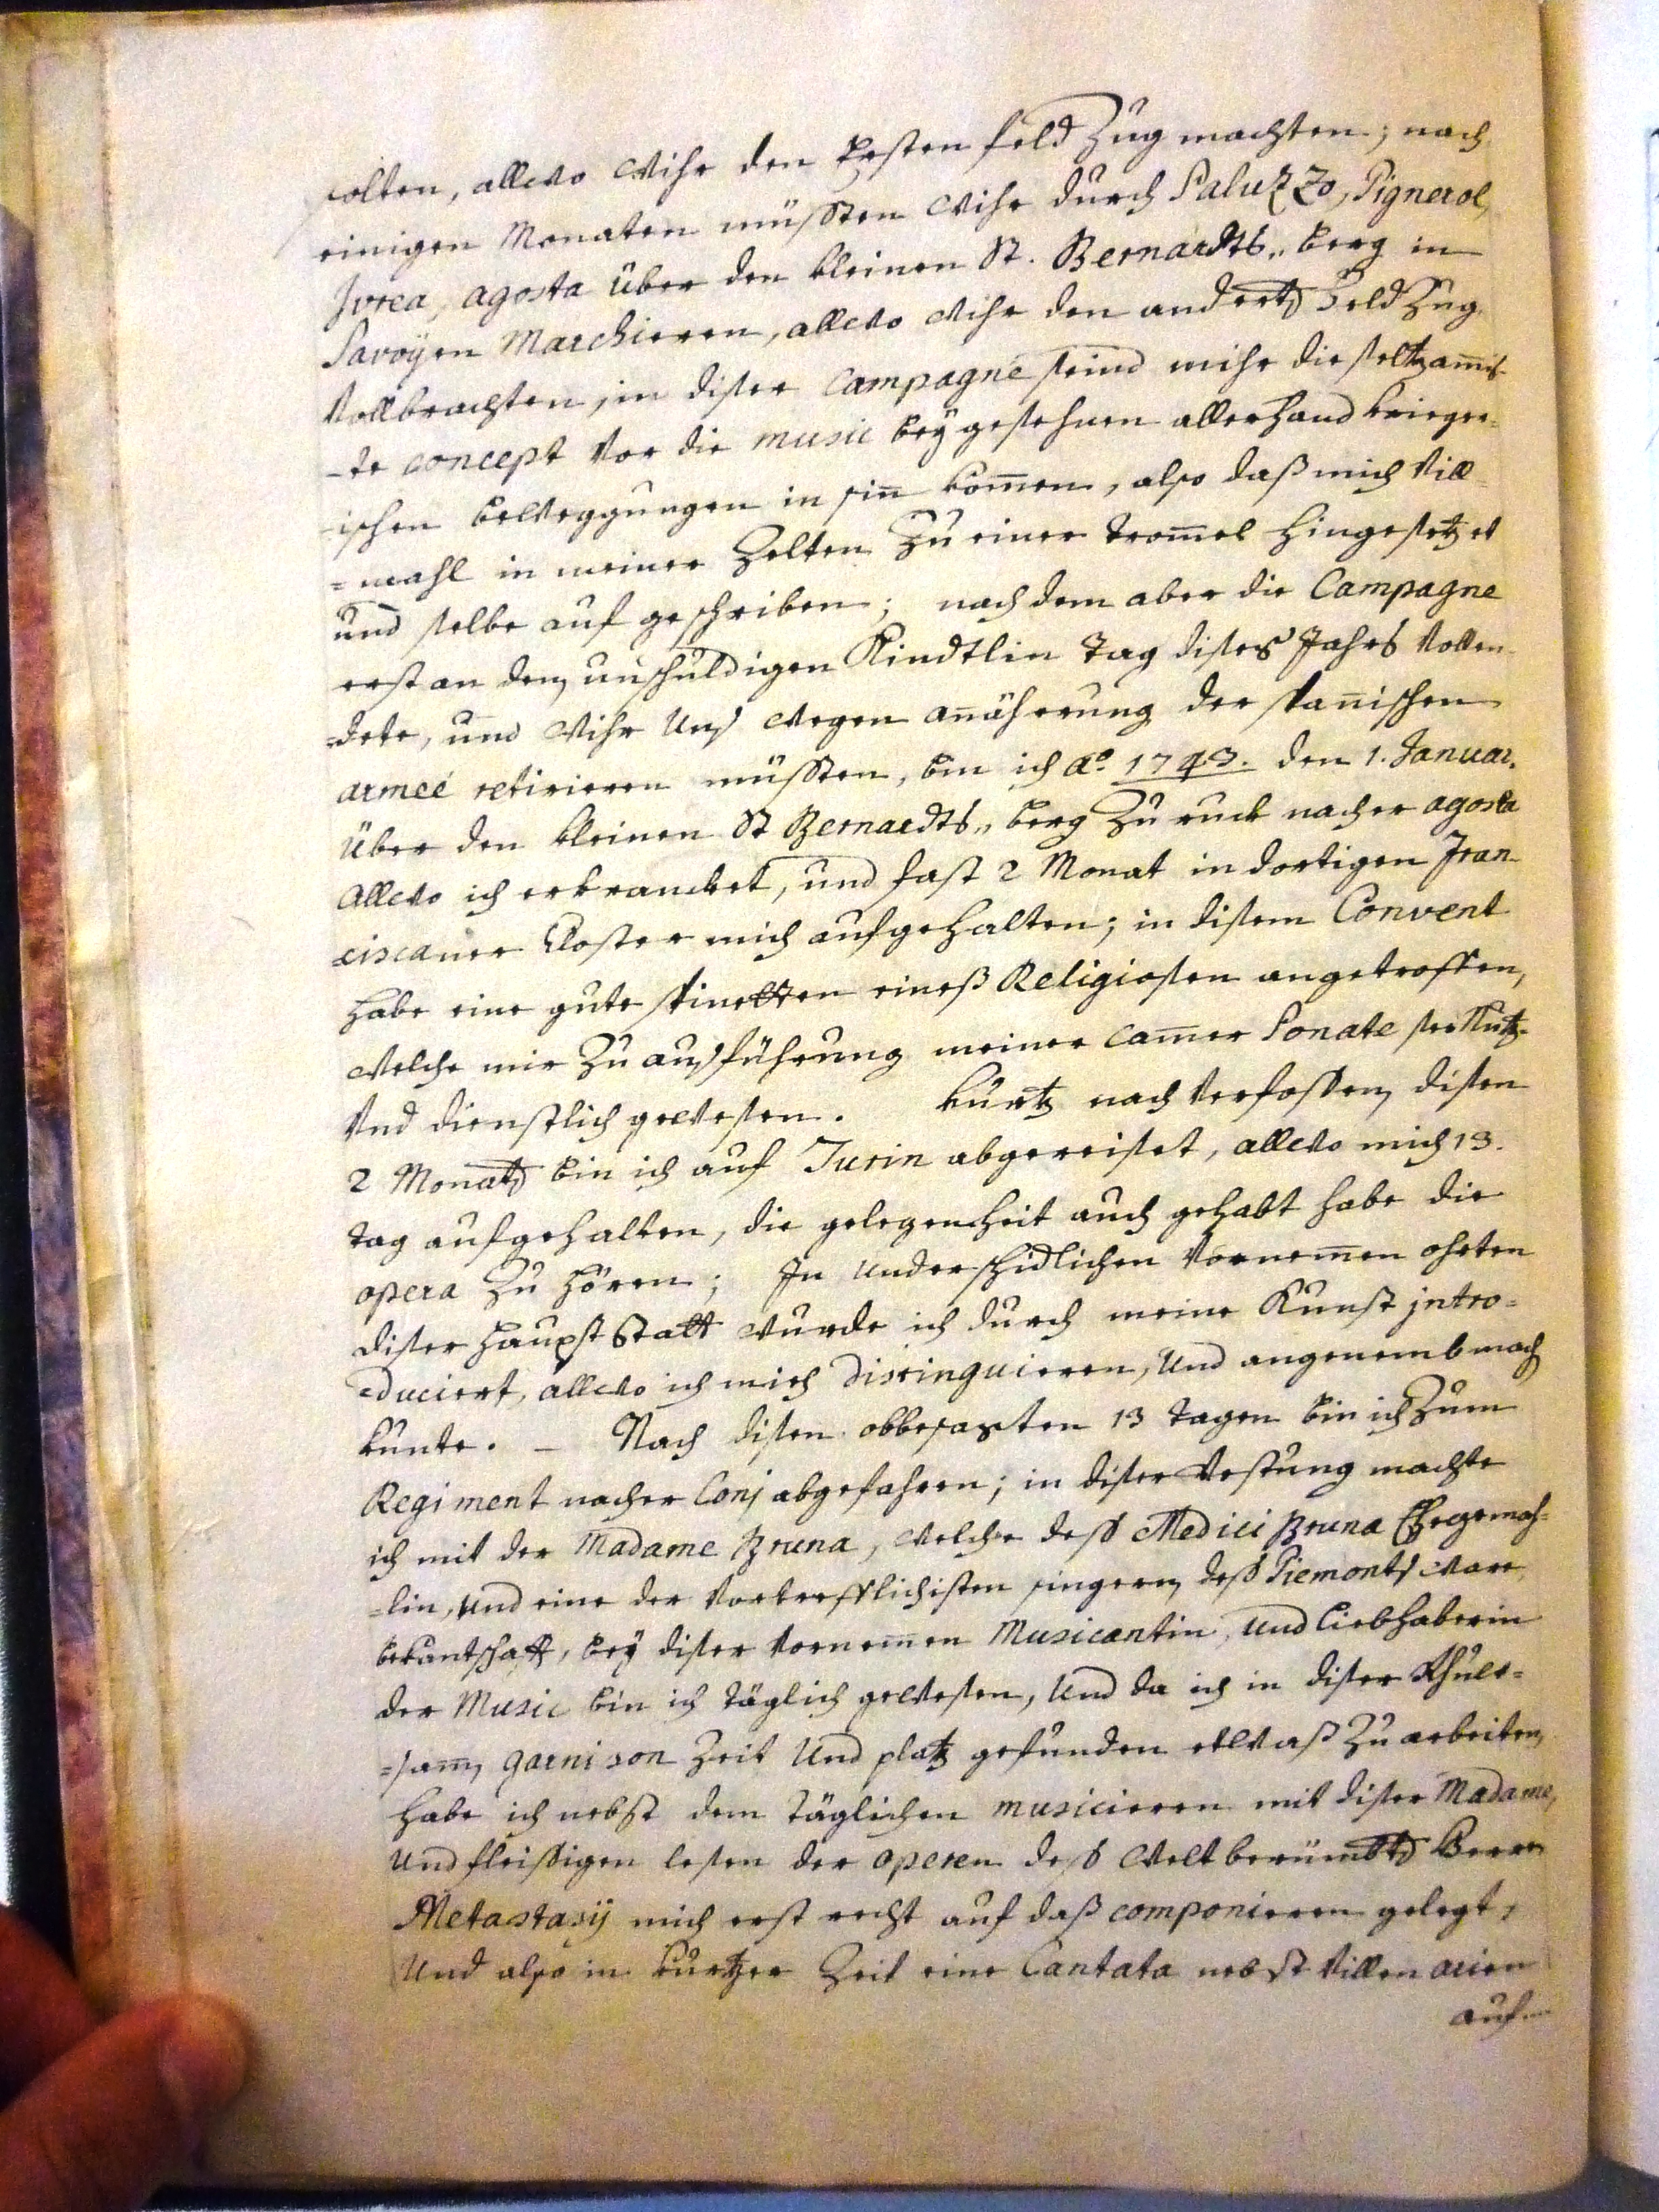 solten, allwo Wihr den Ersten feld Zug machten; nach
einigen Monaten müssten Wihr durch Saluzzo, Pignerol,
Jvrea, agosta über den kleinen St. Bernardts„ berg in
Savoÿen Marchieren, allwo Wihr den anderten Feld Zug
Vollbrachten, in diser Campagne seind mihr die seltzamis-
-te concept Vor die music beÿ gesehnen allerhand kriege-
-ischen beweggungen in sin̄ kom̄en, also daß mich Vill=
=mahl in meiner Zelten Zu einer trom̄el hingesetzet
und selbe auf geschriben; nach dem aber die Campagne
erst an dem unschuldigen Kindtlin tag dises Jahrs Vollen-
=dete, und Wihr Uns wegen an̄äherung der span̄ischen
armeé retirieren müssten, bin ich Aº. 1743. den 1. Januar.
über den kleinen St Bernardts„ berg Zu ruck nacher agosta
allwo ich erkrancket, und fast 2 Monat in dortigen Fran-
=ciscaner Closter mich aufgehalten; in disem Convent
habe eine gute spinetten eineß Religiosen angetroffen,
Welche mir Zu ausführung meiner Cam̄er Sonate sehr Nutz-
Und dienstlich gewesen. Kurtz nach Verfossen disen
2 Monaten bin ich auf Turin abgereiset, allwo mich 13.
tag aufgehalten, die gelegenheit auch gehabt habe die
opera Zu hören; In underschidlichen Vornem̄en ohrten
diser haupt Statt wurde ich durch meine Kunst jntro=
=duciert, allwo ich mich distinguieren, Und angenemb mach
kunte. – Nach disen obbesagten 13 tagen bin ich Zum
Regiment nacher Conj abgefahren; in diser Vestung machte
ich mit der Madame Bruna, welche deß Medici Bruna Ehegemah=
=lin, und eine der Vortrefflichisten singeren deß Piemonts ware,
bekantschafft, beÿ diser Vornem̄en Musicantin, und Liebhaberin
der Music bin ich täglich gewesen, Und da ich in diser Rhüe=
=sam̄en garnison Zeit Und platz gefunden etwaß Zu arbeiten,
habe ich nebst dem täglichen musicieren mit diser Madame,
Und fleissigen lesen der operen deß Welt berümbten Herrn
Metastasij mich erst recht auf daß componieren gelegt,
Und also in kurtzer Zeit eine Cantata nebst Villen arien
auf